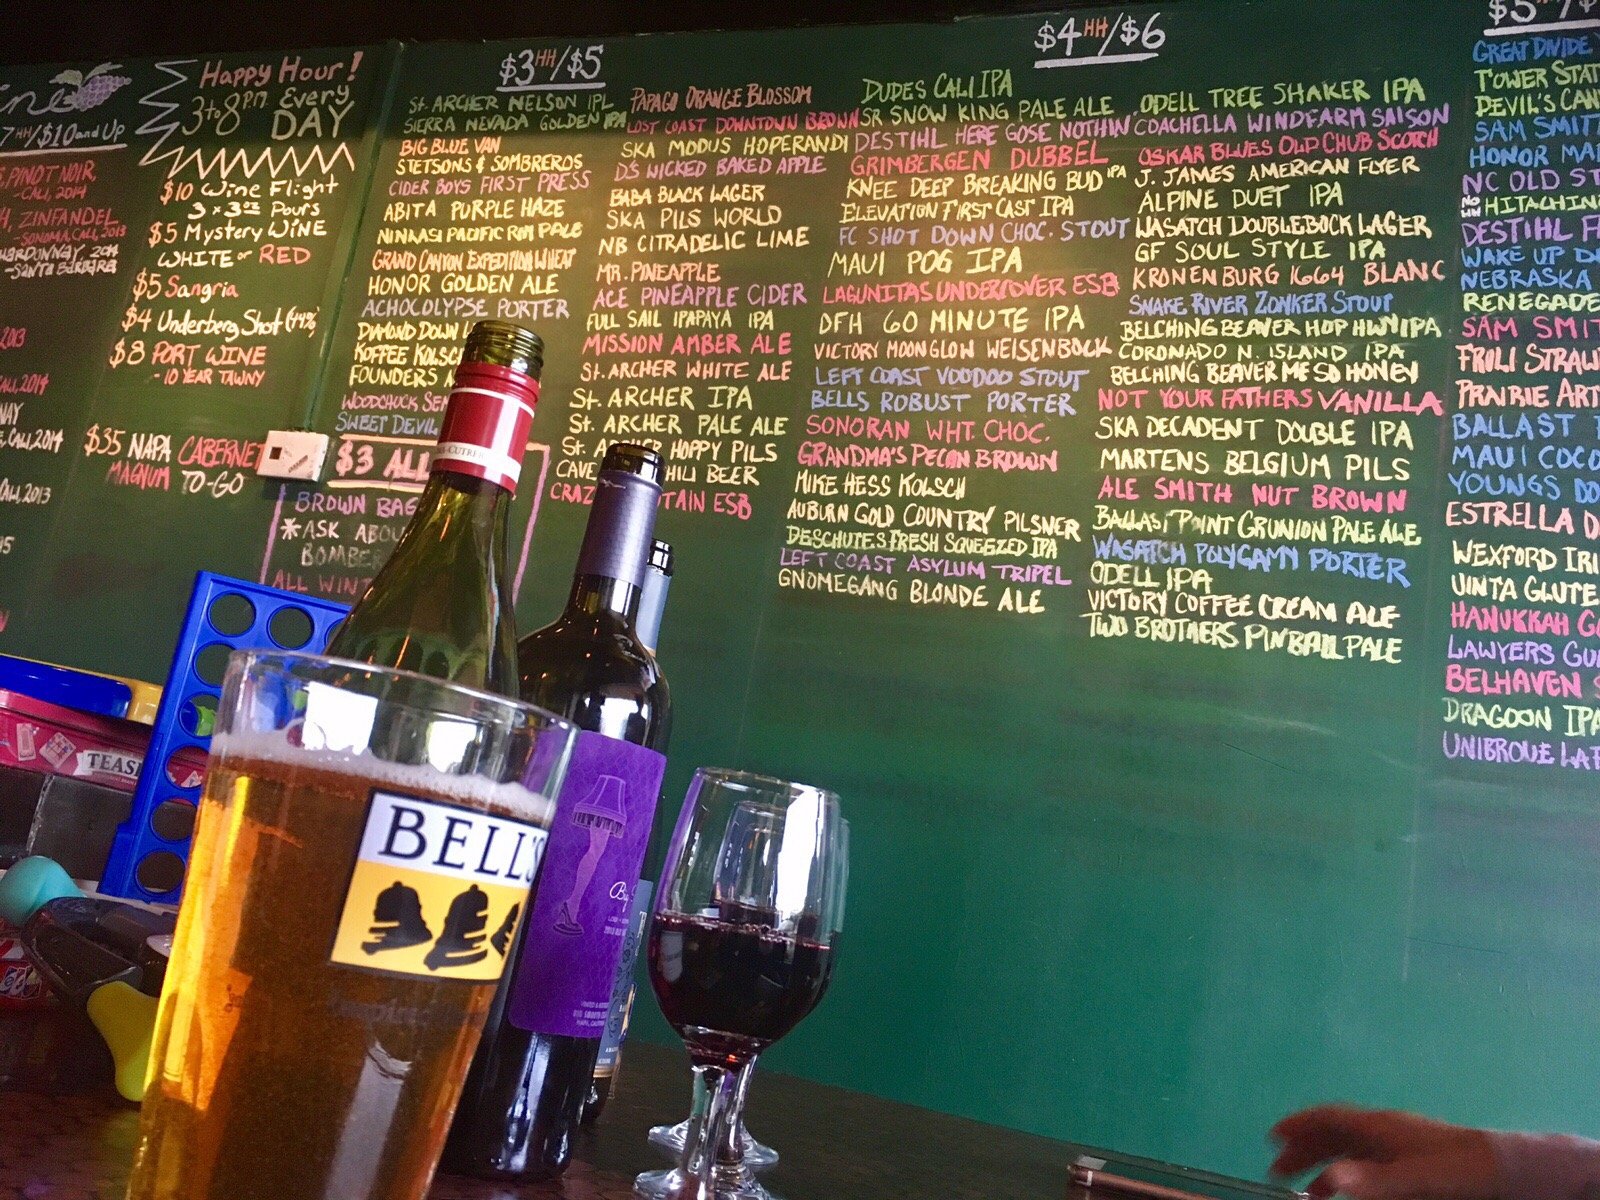 Happy Hour!
3 to 8 PM Every
DAY
7 HH/$10 and Up
PINOT NOIR
CALI, 2014
ZINFANDEL
-SONOMA, CALI, 2013
2014
-SANTA BARBARA
2013
CALI, 2014
CALI, 2014
CALI, 2013
$10 Wine Flight
3 x 3oz Pours
$5 Mystery WINE
WHITE or RED
$5 Sangria
$4 Underberg Shot (44%)
$8 PORT WINE
- 10 YEAR TAWNY
$35 NAPA CABERNET
MAGNUM TO-GO
$3 HH/$5
St. ARCHER NELSON IPL
SIERRA NEVADA GOLDEN IPA
BIG BLUE VAN
STETSONS & SOMBREROS
CIDER BOYS FIRST PRESS
ABITA PURPLE HAZE
NINKASI PACIFIC RAIN PALE
GRAND CANYON EXPEDITION WHEAT
HONOR GOLDEN ALE
ACHOCOLYPSE PORTER
DIAMOND DOWN
KOFFEE KOLSCH
FOUNDERS
WOODCHUCK
SWEET DEVIL
$3 ALL
BROWN BAG
*ASK ABOU
BOMBER
ALL WIN
PAPAGO ORANGE BLOSSOM
LOST COAST DOWNTOWN BROWN
SKA MODUS HOPERANDI
D'S WICKED BAKED APPLE
BABA BLACK LAGER
SKA PILS WORLD
NB CITRADELIC LIME
MR. PINEAPPLE
ACE PINEAPPLE CIDER
FULL SAIL IPAPAYA IPA
MISSION AMBER ALE
St. ARCHER WHITE ALE
St. ARCHER IPA
St. ARCHER PALE ALE
St. ARCHER HOPPY PILS
CAVE CHILI BEER
CRAZ TAIN ESB
$4 HH/$6
DUDES CALI IPA
SR SNOW KING PALE ALE
DESTIHL HERE GOSE NOTHIN'
GRIMBERGEN DUBBEL
KNEE DEEP BREAKING BUD IPA
ELEVATION FIRST CAST IPA
FC SHOT DOWN CHOC. STOUT
MAUI POG IPA
LAGUNITAS UNDERCOVER ESB
DFH 60 MINUTE IPA
VICTORY MOONGLOW WEISENBOCK
LEFT COAST VOODOO STOUT
BELLS ROBUST PORTER
SONORAN WHT. CHOC.
GRANDMA'S PECAN BROWN
MIKE HESS KOLSCH
AUBURN GOLD COUNTRY PILSNER
DESCHUTES FRESH SQUEEZED IPA
LEFT COAST ASYLUM TRIPEL
GNOMEGANG BLONDE ALE
ODELL TREE SHAKER IPA
COACHELLA WINDFARM SAISON
OSKAR BLUES OLD CHUB SCOTCH
J. JAMES AMERICAN FLYER
ALPINE DUET IPA
WASATCH DOUBLEBOCK LAGER
GF SOUL STYLE IPA
KRONENBURG 1664 BLANC
SNAKE RIVER ZONKER STOUT
BELCHING BEAVER HOP HWY IPA
CORONADO N. ISLAND IPA
BELCHING BEAVER ME SO HONEY
NOT YOUR FATHERS VANILLA
SKA DECADENT DOUBLE IPA
MARTENS BELGIUM PILS
ALE SMITH NUT BROWN
BALLAST POINT GRUNION PALE ALE
WASATCH POLYGAMY PORTER
ODELL IPA
VICTORY COFFEE CREAM ALE
TWO BROTHERS PINBALL PALE
GREAT DIVIDE
TOWER STAT
DEVIL'S CAN
SAM SMIT
HONOR MA
NC OLD ST
HITACHINO
DESTIHL F
WAKE UP D
NEBRASKA
RENEGADE
SAM SMIT
FRULI STRAW
PRAIRIE ART
BALLAST
MAUI COCO
YOUNGS DO
ESTRELLA D
WEXFORD IRI
UINTA GLUTE
HANUKKAH
LAWYERS GU
BELHAVEN
DRAGOON IPA
UNIBROUE LA
TEAS
BELL'S